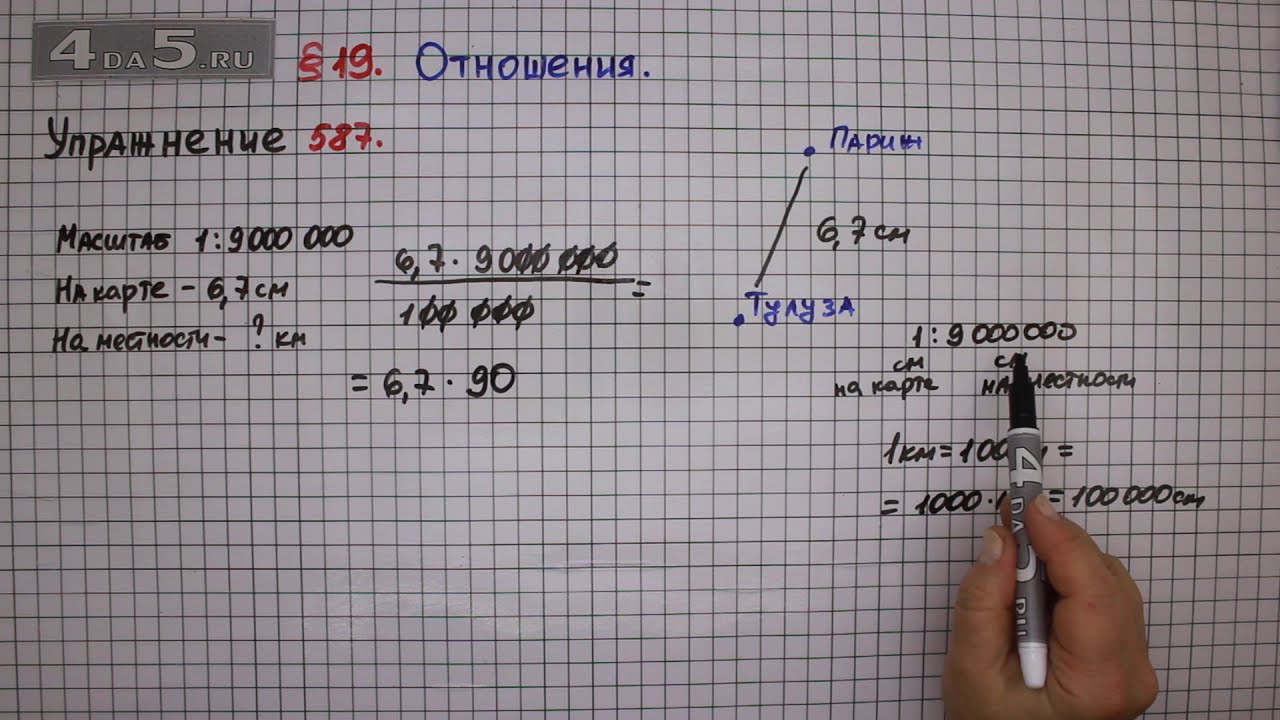 4DA5.RU
§ 19. Отношения.
Упражнение 587.
Масштаб 1 : 9 000 000
На карте – 6,7 см
На местности – ? км
6,7 · 9 000 000
100 000
=
= 6,7 · 90
Париж
6,7 см
Тулуза
1 : 9 000 000
см см
на карте на местности
1 км = =
= 1000 · = 100 000 см
4DA5.RU